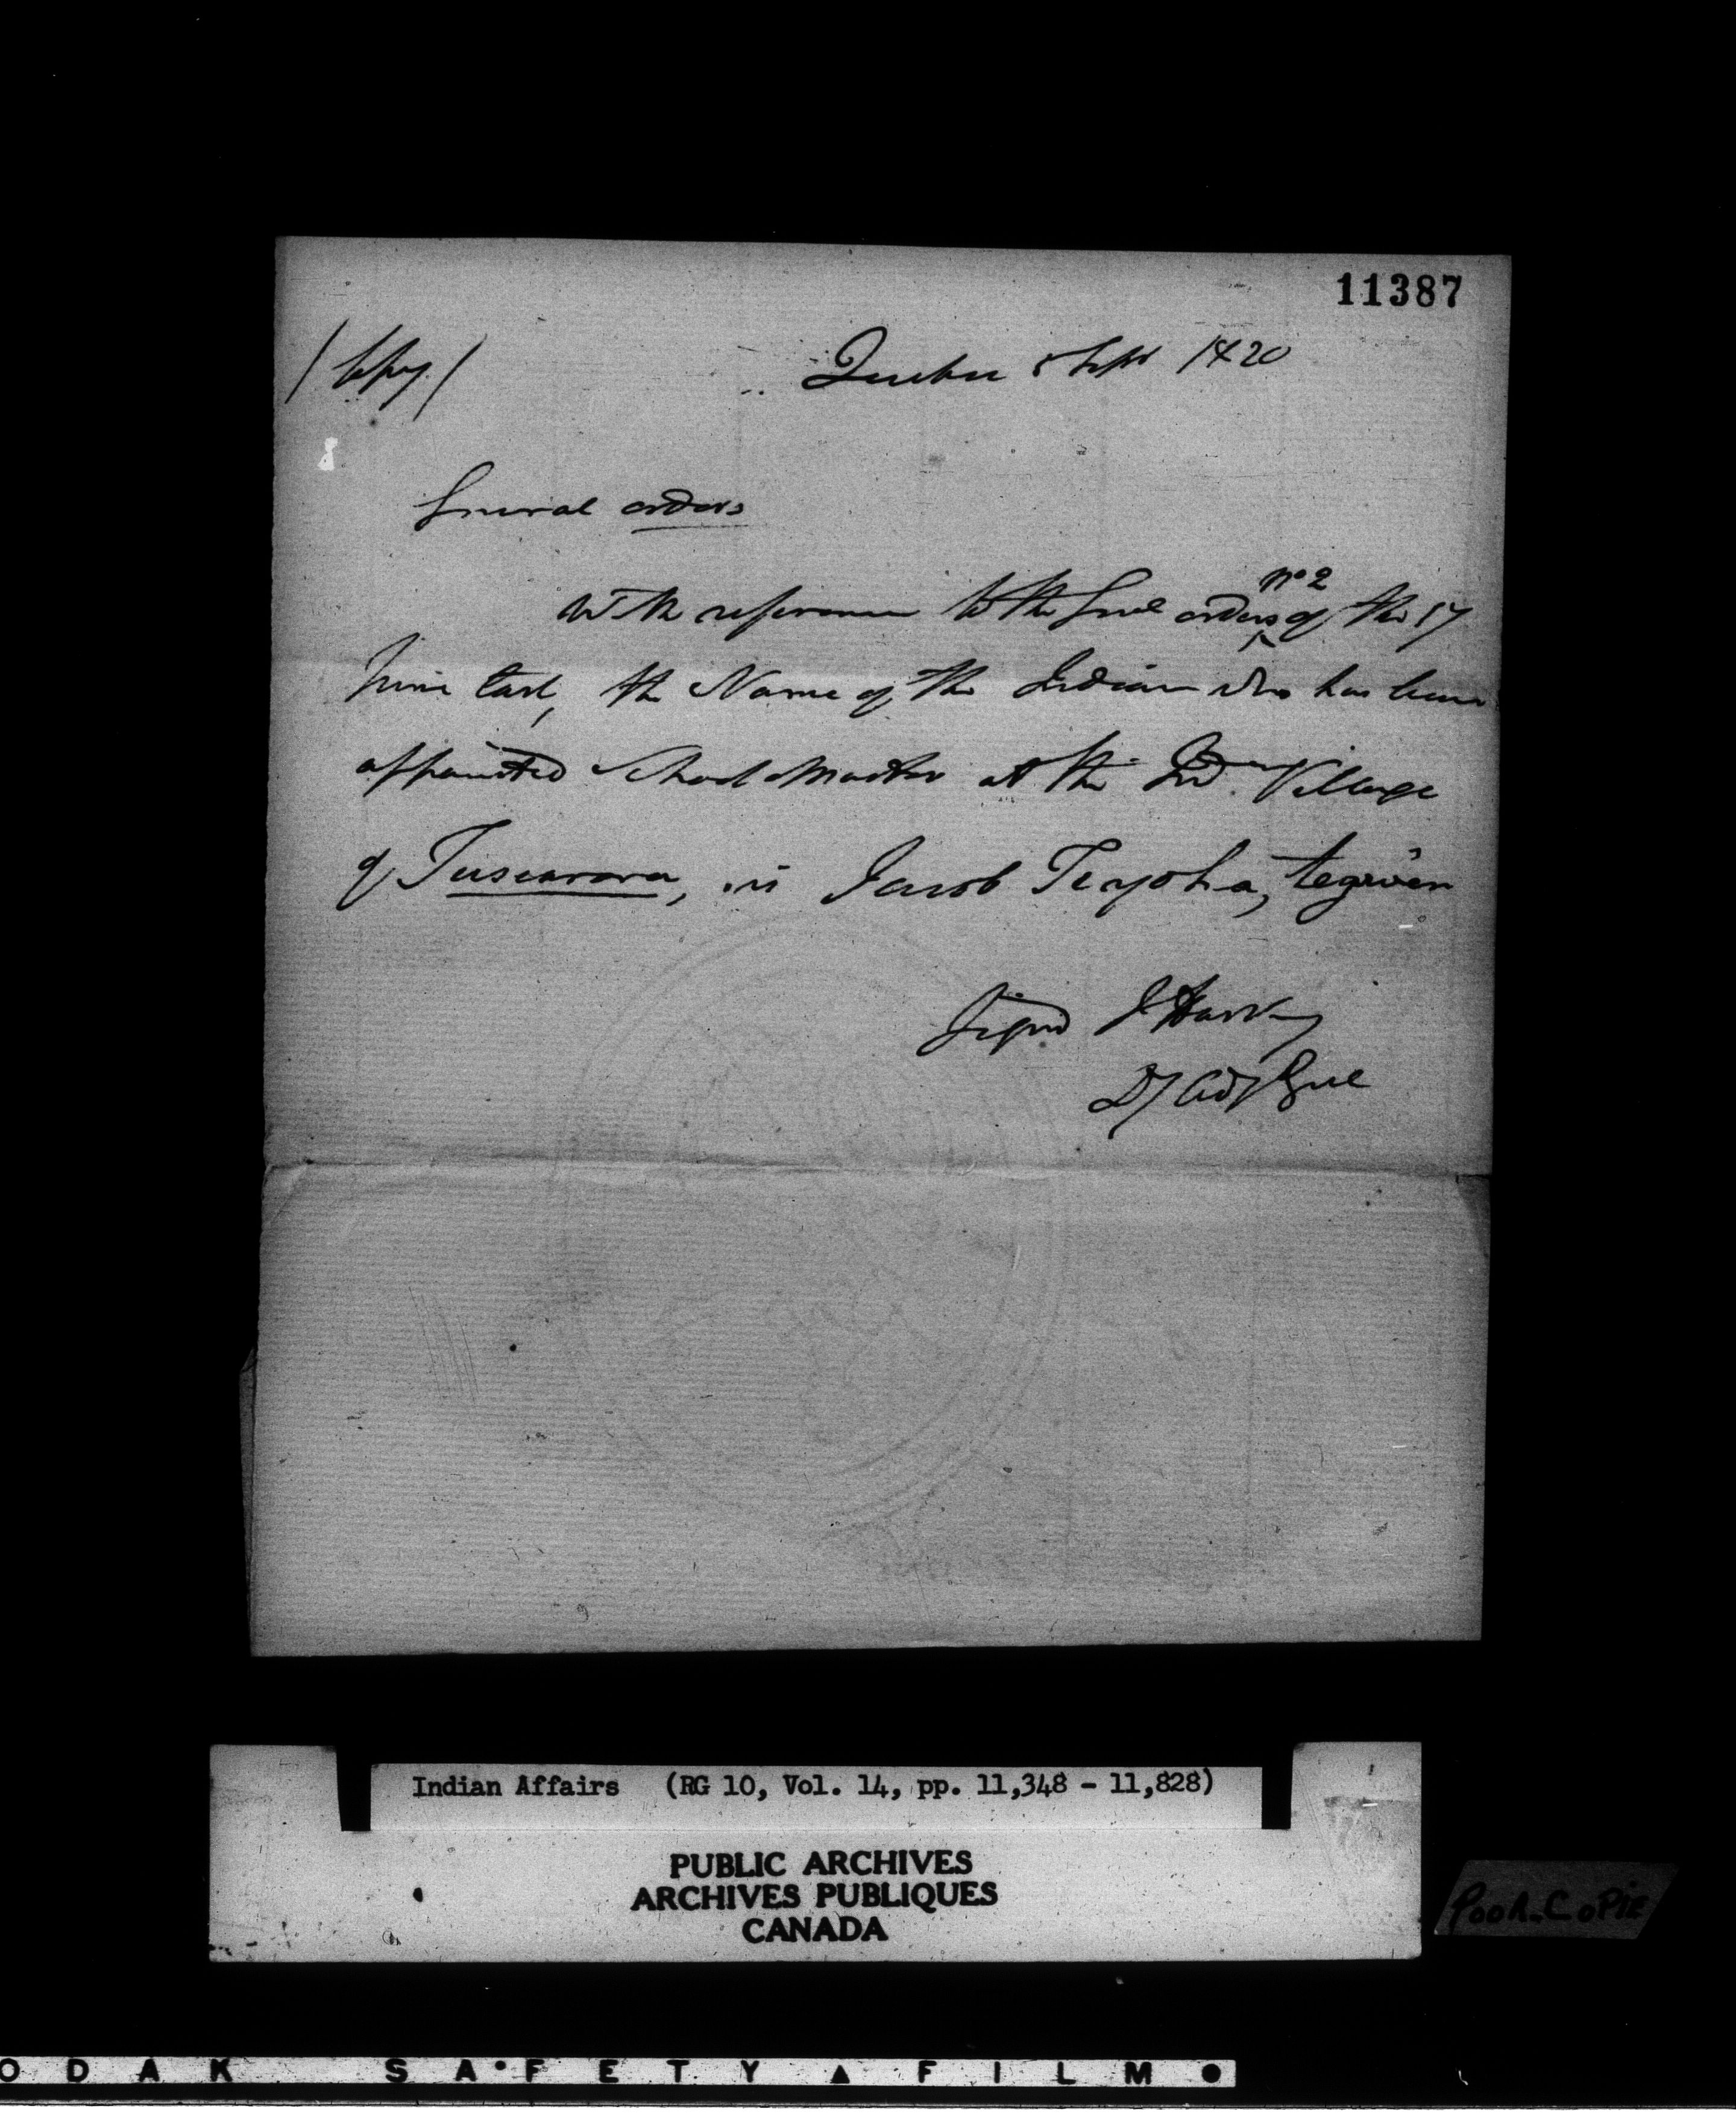 11387
/Copy/
Quebec 8 Sept 1820
General orders
With reference to the Genl orders no 2 of the 17
June last, the Name of the Indian who has been
appointed School Master at the Indn Village
of Tuscarora, is Jacob Teyoha,tegwen
Signd J Harvey
Dy Adj Genl
Indian Affairs (RG 10, Vol. 14, pp. 11,348 - 11,828)
PUBLIC ARCHIVES
ARCHIVES PUBLIQUES
CANADA
POOR COPIE
ODAK SAFETY FILM